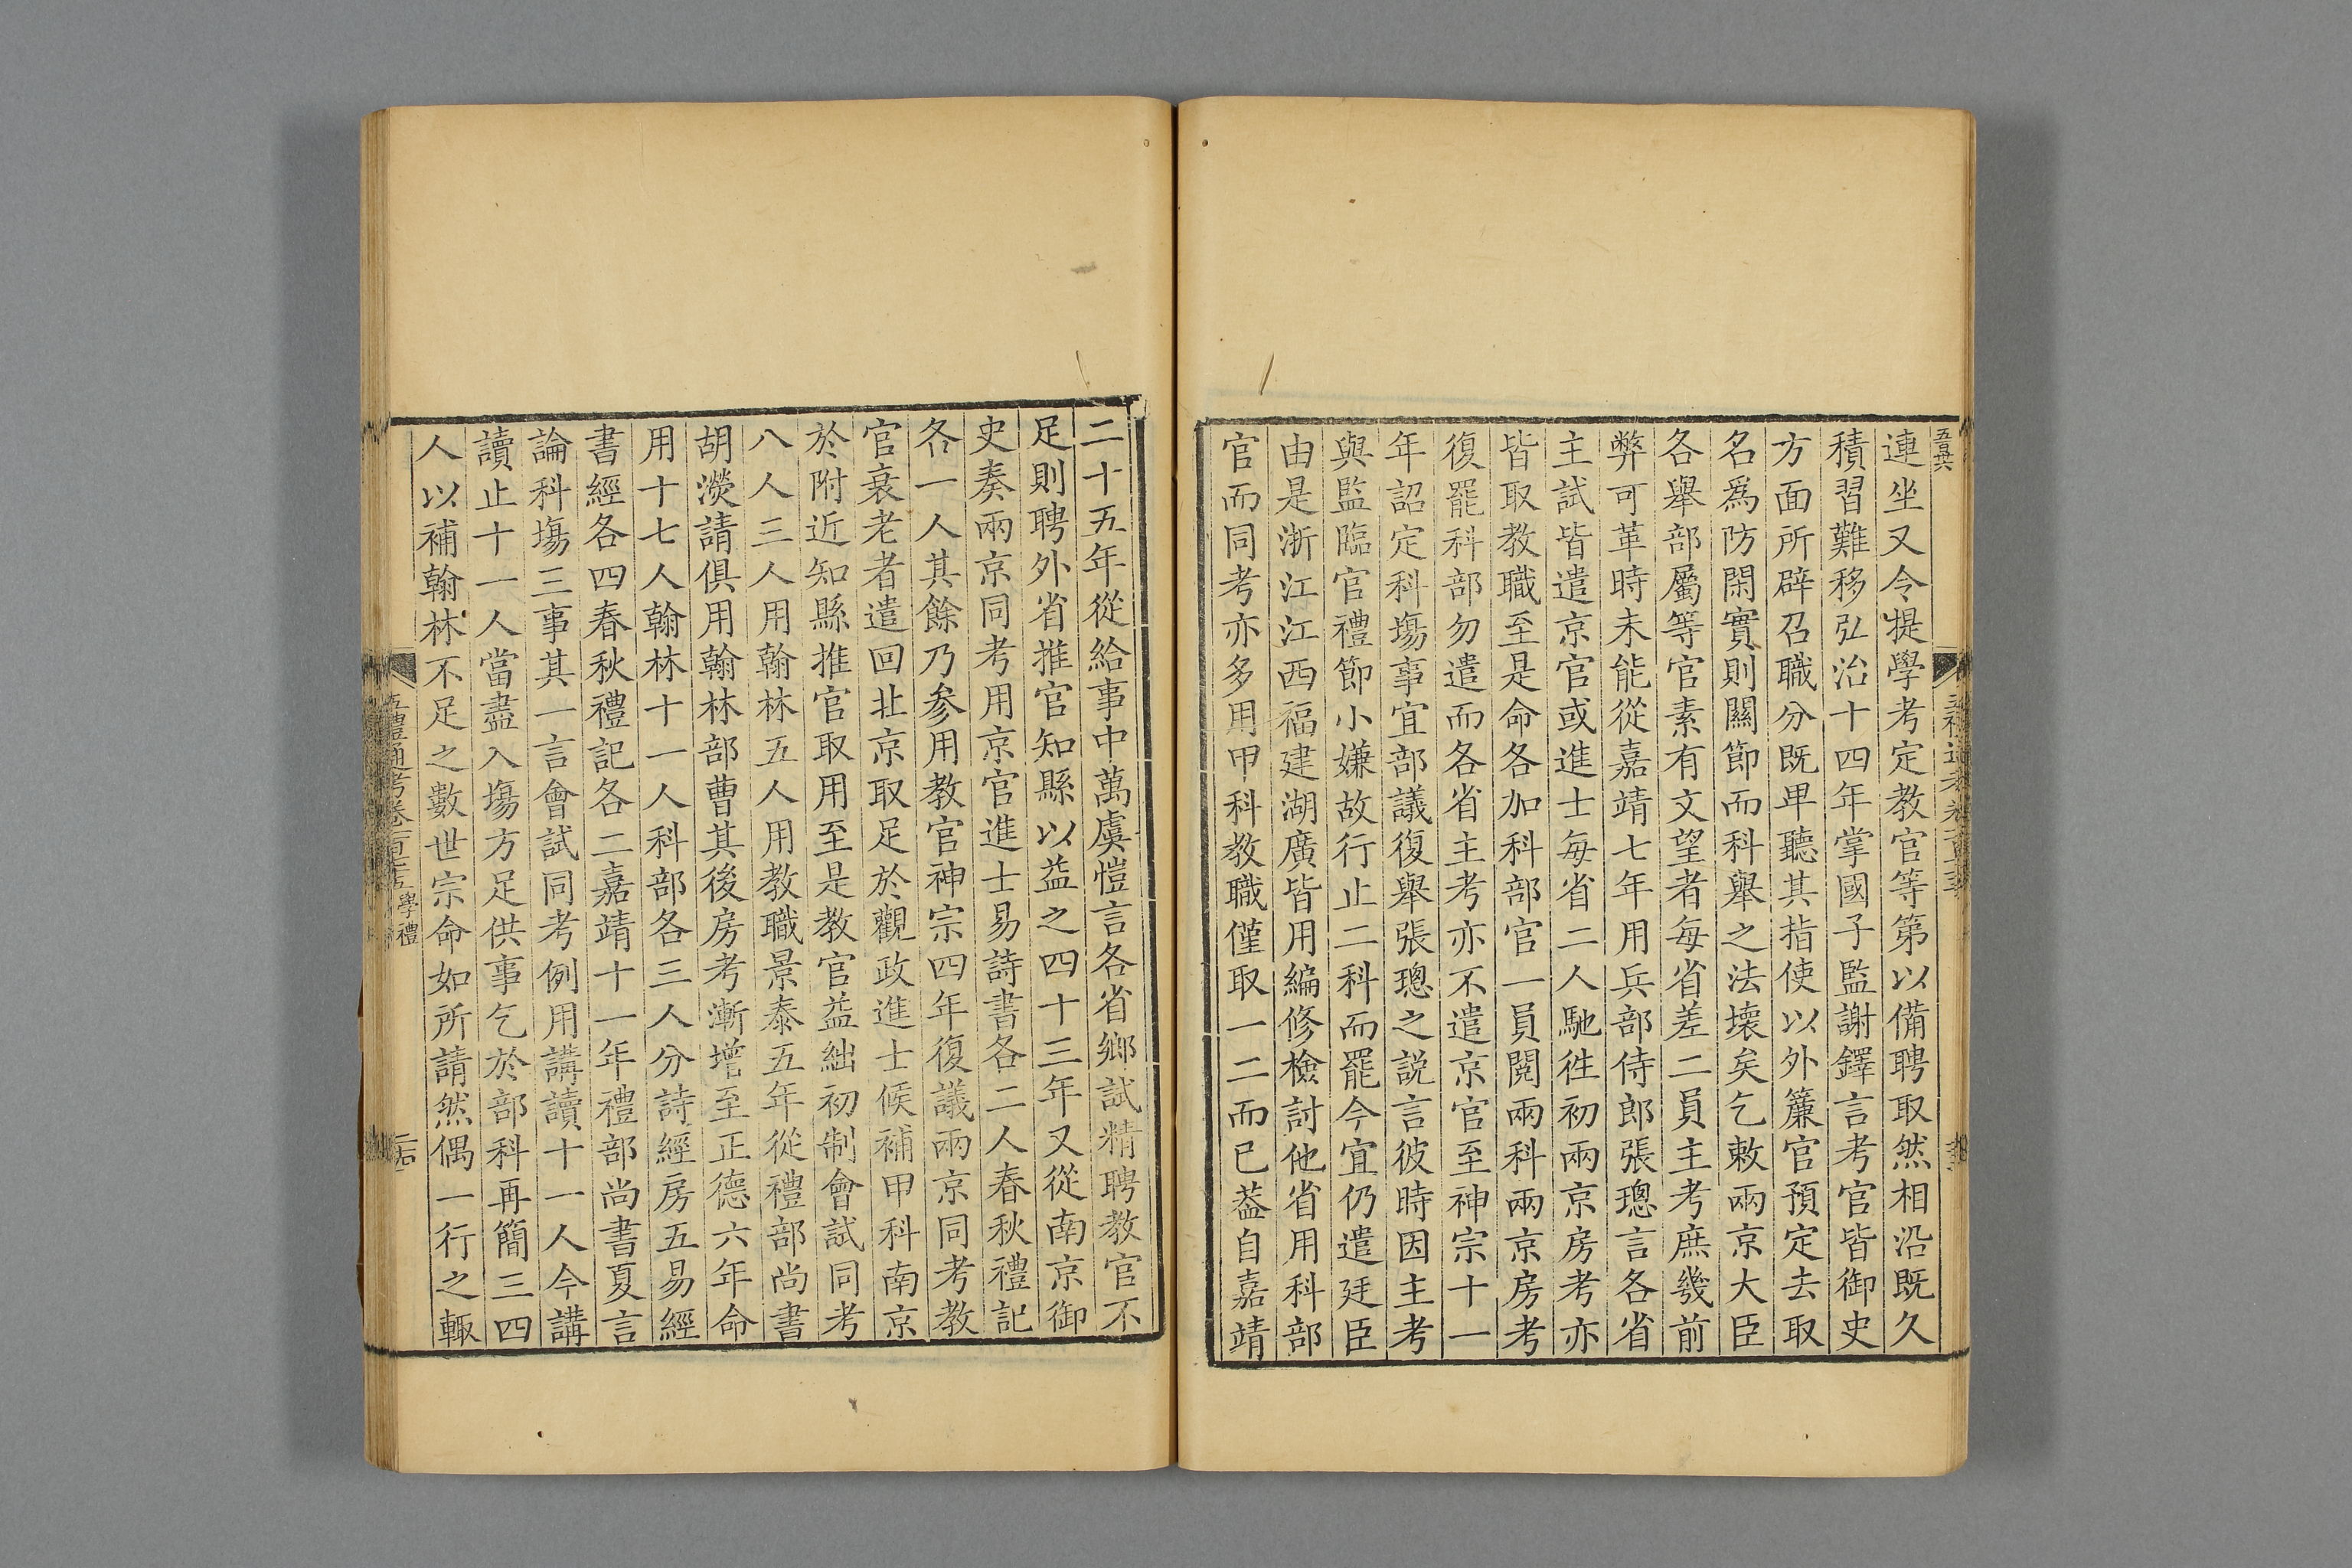 連坐又令提學考定教官等第以備聘取然相沿既久
積習難移弘治十四年掌國子監謝鐸言考官皆御史
方面所辟召職分既卑聽其指使以外簾官預定去取
名爲防閑實則關節而科舉之法壞矣乞敕兩京大臣
各舉部屬等官素有文望者每省差二員主考庶幾前
弊可革時未能從嘉靖七年用兵部侍郎張璁言各省
主試皆遣京官或進士每省二人馳徃初兩京房考亦
皆取教職至是命各加科部官一員閱兩科兩京房考
復罷科部勿遣而各省主考亦不遣京官至神宗十一
年詔定科塲事宜部議復舉張璁之説言彼時因主考
與監臨官禮節小嫌故行止二科而罷今宜仍遣廷臣
由是浙江江西福建湖廣皆用編修檢討他省用科部
官而同考亦多用甲科教職僅取一二而已葢自嘉靖
二十五年從給事中萬虞愷言各省鄉試精聘教官不
足則聘外省推官知縣以益之四十三年又從南京御
史奏兩京同考用京官進士易詩書各二人春秋禮記
各一人其餘乃參用教官神宗四年復議兩京同考教
官衰老者遣回北京取足於觀政進士候補甲科南京
於附近知縣推官取用至是教官益絀初制會試同考
八人三人用翰林五人用教職景泰五年從禮部尚書
胡濙請俱用翰林部曹其後房考漸增至正德六年命
用十七人翰林十一人科部各三人分詩經房五易經
書經各四春秋禮記各二嘉靖十一年禮部尚書夏言
論科塲三事其一言會試同考例用講讀十一人今講
讀止十一人當盡入塲方足供事乞於部科再簡三四
人以補翰林不足之數世宗命如所請然偶一行之輙
五禮通考卷一百七十五 學禮